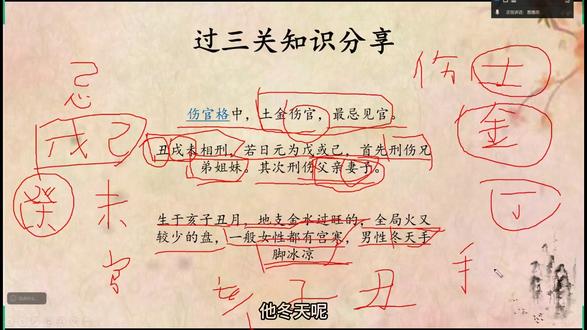 过三关知识分享
伤官格中，土金伤官，最忌见官。
丑戌未相刑，若日元为戊或己，首先刑伤兄
弟姐妹。其次刑伤父亲妻子。
生于亥子丑月，地支金水过旺的，全局火又
较少的盘，一般女性都有宫寒，男性冬天手
脚冰凉
忌
戊己
未
宫
伤
土
金
子丑
手
他冬天呢